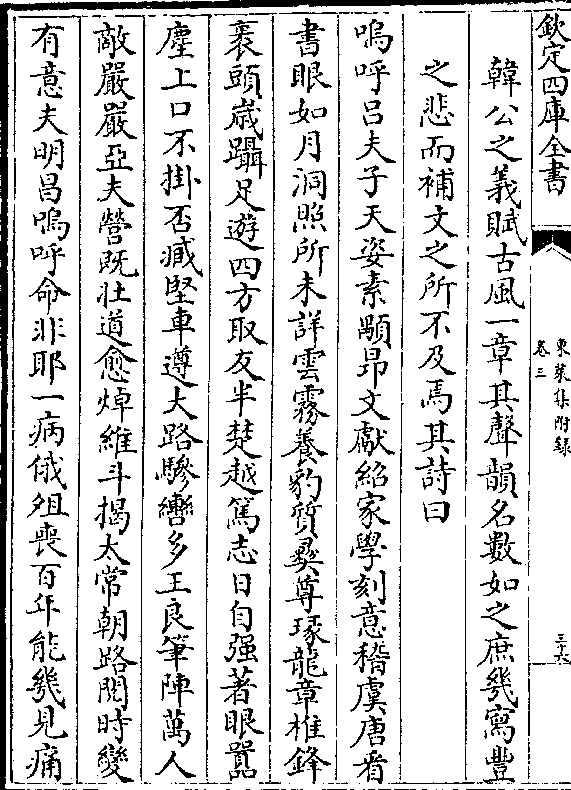 欽定四庫全書
東萊集附錄
卷三
三十六
韓公之義賦古風一章其聲韻名數如之庶幾寓豐
之悲而補文之所不及焉其詩曰
嗚呼呂夫子天姿素顒昂文獻紹家學刻意稽虞唐看
書眼如月洞照所未詳雲霧養豹質彛尊琢龍章椎鋒
裹頭歲躡足遊四方取友半楚越篤志日自强著眼囂
塵上口不掛否臧堅車遵大路驂轡多王良筆陣萬人
敵嚴嚴亞夫營既壯道愈焯維斗揭太常朝路閱時變
有意夫明昌嗚呼命非耶一病俄殂喪百年能幾見痛